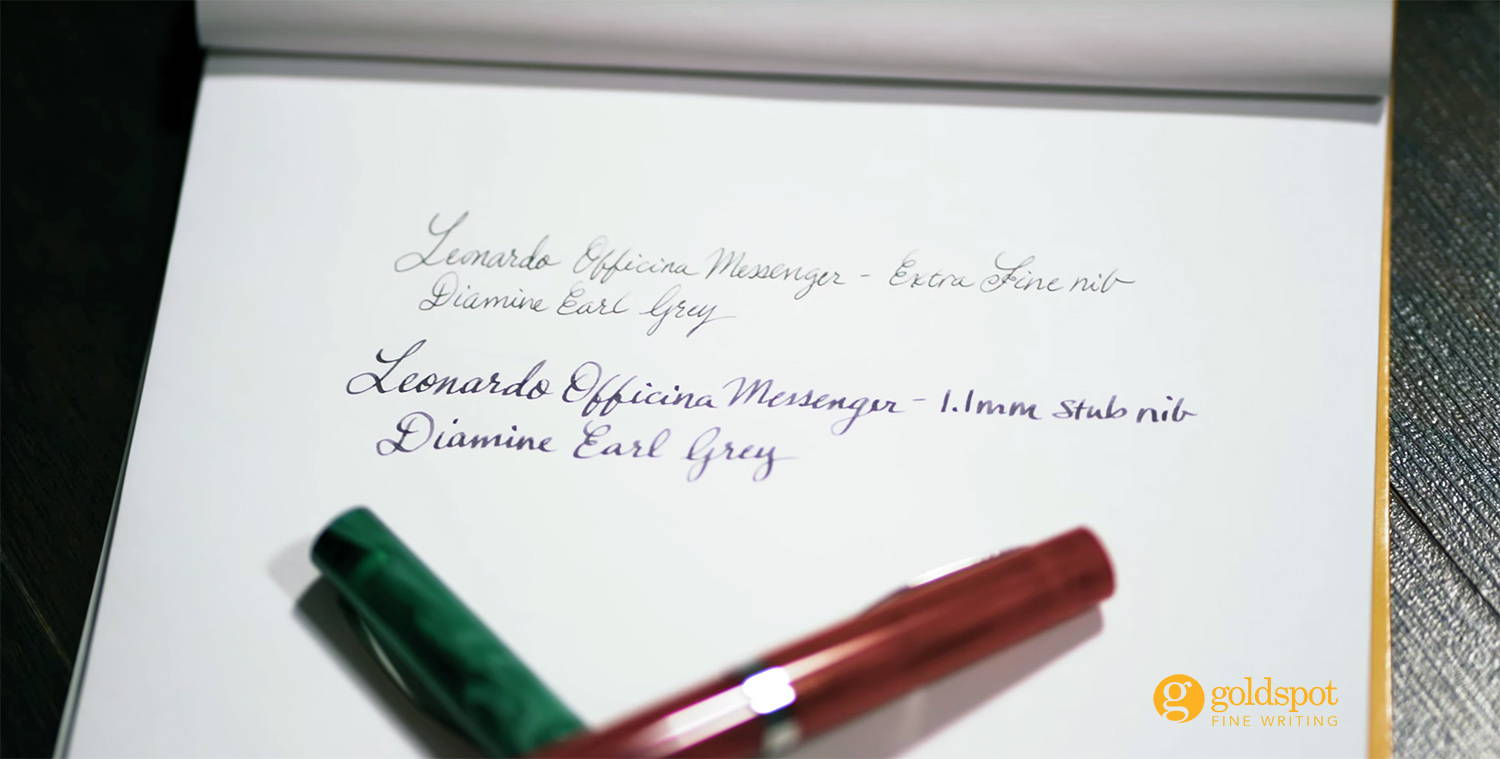 Leonardo Officina Messenger - Extra Fine nib
Diamine Earl Grey
Leonardo Officina Messenger - 1.1mm stub nib
Diamine Earl Grey
g goldspot
FINE WRITING